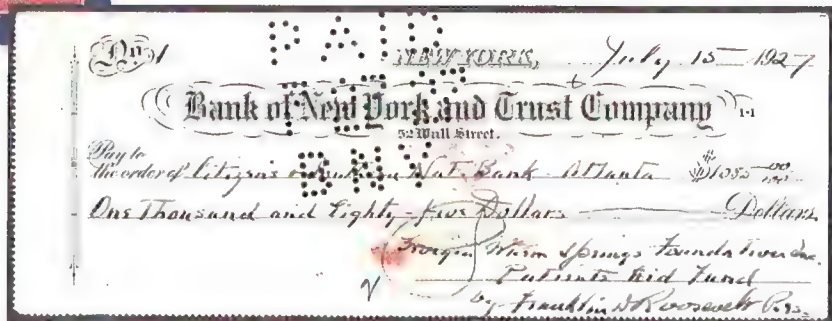 No. 1
PAID
NEW YORK, July 15 1927
Bank of New York and Trust Company 1-1
52 Wall Street.
Pay to
the order of Citizen's & Nat. Bank - Atlanta $1085 00/100
One Thousand and Eighty-five Dollars Dollars
Georgia Warm Springs Foundation Inc.
Patients Aid Fund
by Franklin D Roosevelt Pres.